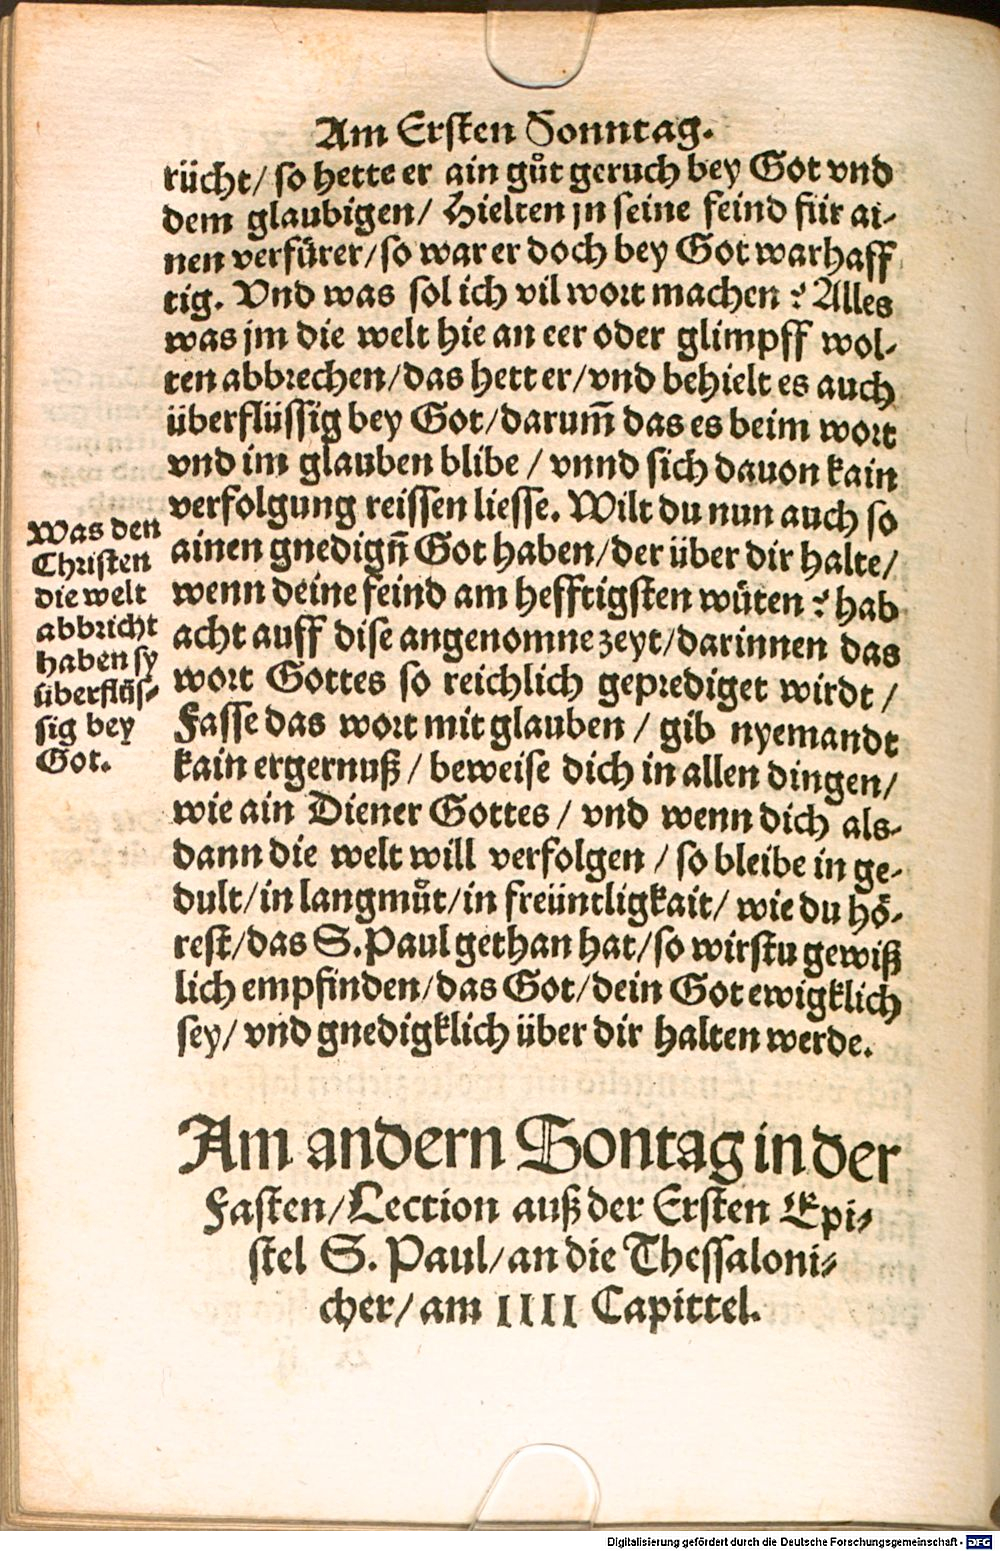 Am Ersten Sonntag.
rücht/ so hette er ain gůt geruch bey Got vnd
dem glaubigen/ Hielten jn seine feind für ai-
nen verfürer/so war er doch bey Got warhaff
tig. Vnd was sol ich vil wort machen ? Alles
was jm die welt hie an eer oder glimpff wol-
ten abbrechen/das hett er/vnd behielt es auch
überflüssig bey Got/darum̃ das es beim wort
vnd im glauben blibe / vnnd sich dauon kain
verfolgung reissen liesse. Wilt du nun auch so
ainen gnedign̄ Got haben/der über dir halte/
wenn deine feind am hefftigsten wüten ? hab
acht auff dise angenomne zeyt/darinnen das
wort Gottes so reichlich geprediget wirdt /
Fasse das wort mit glauben / gib nyemandt
kain ergernuß / beweise dich in allen dingen/
wie ain Diener Gottes / vnd wenn dich als-
dann die welt will verfolgen / so bleibe in ge-
dult/in langmůt/in freüntligkait/ wie du hö-
rest/das S.Paul gethan hat/so wirstu gewiß
lich empfinden/das Got/dein Got ewigklich
sey/ vnd gnedigklich über dir halten werde.
Was den
Christen
die welt
abbricht
haben sy
überflüs-
sig bey
Got.
Am andern Sontag in der
Fasten/Lection auß der Ersten Epi-
stel S. Paul/an die Thessaloni-
cher/ am IIII Capittel.
Digitalisierung gefördert durch die Deutsche Forschungsgemeinschaft - DFG